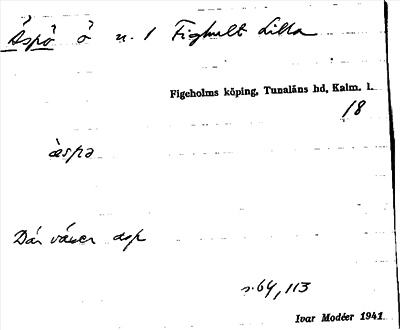 Äspö ö n. 1 Fighult Lilla
Figeholms köping, Tunaläns hd, Kalm. l.
18
äspə
Där växer asp
s. 64, 113
Ivar Modéer 1941